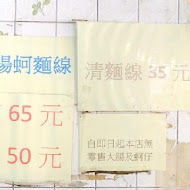 腸蚵麵線
65 元
50 元
清麵線 35 元
自即日起本店無
零售大腸及蚵仔